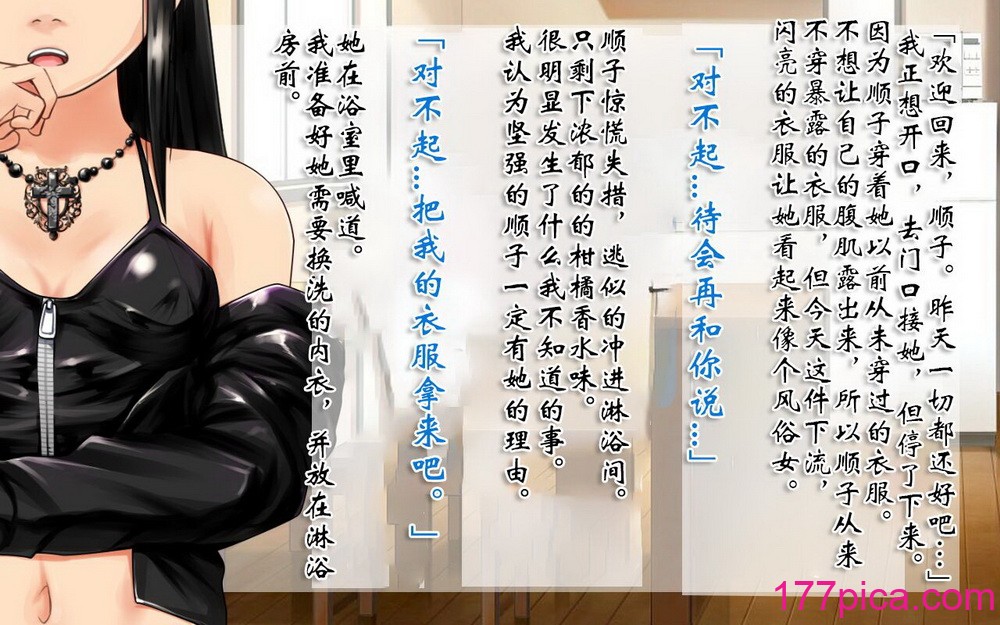 「欢迎回来，顺子。昨天一切都还好吧…」
我正想开口，去门口接她，但停了下来。
因为顺子穿着她以前从未穿过的衣服。
不想让自己的腹肌露出来，所以顺子从来
不穿暴露的衣服，但今天这件下流，
闪亮的衣服让她看起来像个风俗女。
「对不起…待会再和你说…」
顺子惊慌失措，逃似的冲进淋浴间。
只剩下浓郁的的柑橘香水味。
很明显发生了什么我不知道的事。
我认为坚强的顺子一定有她的理由。
「对不起…把我的衣服拿来吧。」
她在浴室里喊道。
我准备好她需要换洗的内衣，并放在淋浴
房前。
177pica.com